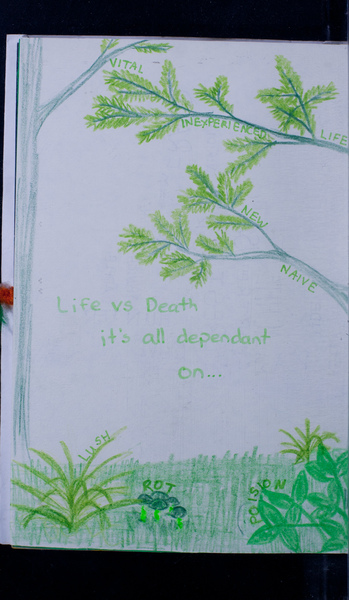 VITAL
INEXPERIENCED
LIFE
NEW
NAIVE
Life vs Death
it's all dependant
on...
LUSH
ROT
POISION